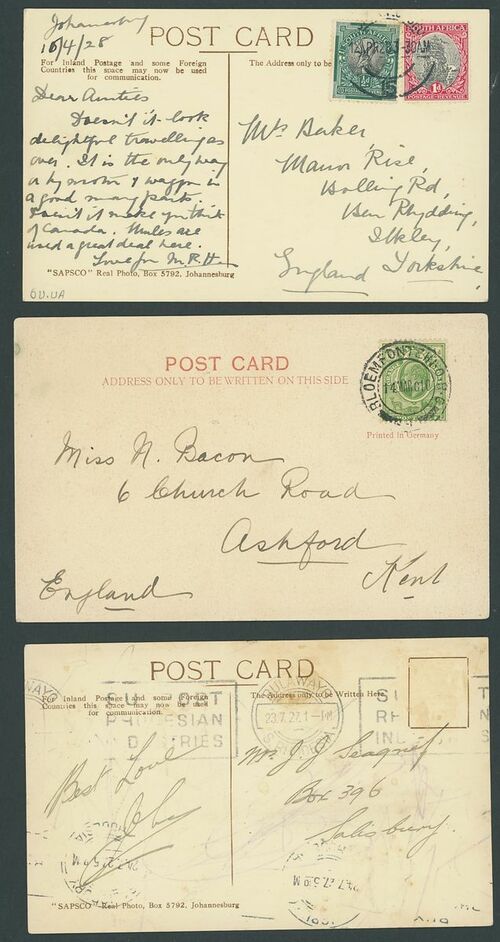 Johannesburg
16/4/28
POST CARD
For Inland Postage and some Foreign
Countries this space may now be used
for communication.
The Address only to be
SOUTH AFRICA
POSTAGE-REVENUE
Dear Aunties
Doesn't it look
delightful travelling as
over. It is the only way
or by motor & waggon in
a good many parts.
Doesn't it make you think
of Canada. Mules are
used a great deal here.
Love from M.R.H
"SAPSCO" Real Photo, Box 5792, Johannesburg
Mrs Baker,
Manor Rise,
Bolling Rd,
Ben Rhydding,
Ilkley,
England Yorkshire,
POST CARD
ADDRESS ONLY TO BE WRITTEN ON THIS SIDE
BLOEMFONTEIN
Printed in Germany
Miss N. Bacon
6 Church Road
Ashford
England Kent
POST CARD
For Inland Postage and some Foreign
Countries this space may now be used
for communication.
The Address only to be Written Here.
SUPPORT
RHODESIAN
INDUSTRIES
BULAWAYO
23.7.27.1-PM
Best Love
Mr. J. J.
Box 396
Salisbury.
"SAPSCO" Real Photo, Box 5792, Johannesburg